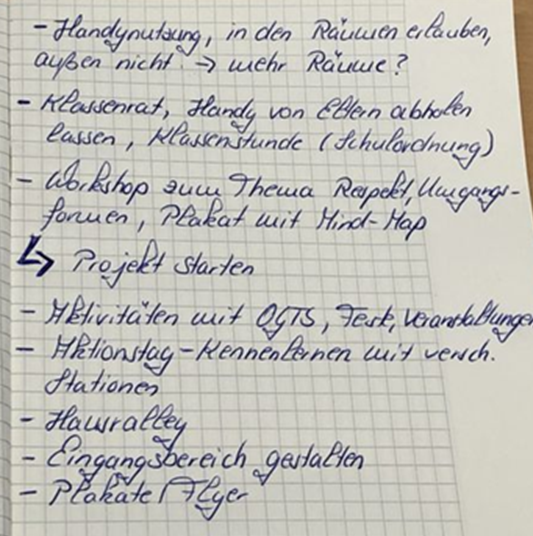 - Handynutzung, in den Räumen erlauben,
außen nicht → mehr Räume?
- Klassenrat, Handy von Eltern abholen
lassen, Klassenstunde (Schulordnung)
- Workshop zum Thema Respekt, Umgangs-
formen, Plakat mit Mind-Map
↳ Projekt starten
- Aktivitäten mit OGTS, Feste, Veranstaltungen
- Aktionstag - Kennenlernen mit versch.
Stationen
- Hausralley
- Eingangsbereich gestalten
- Plakate / Flyer